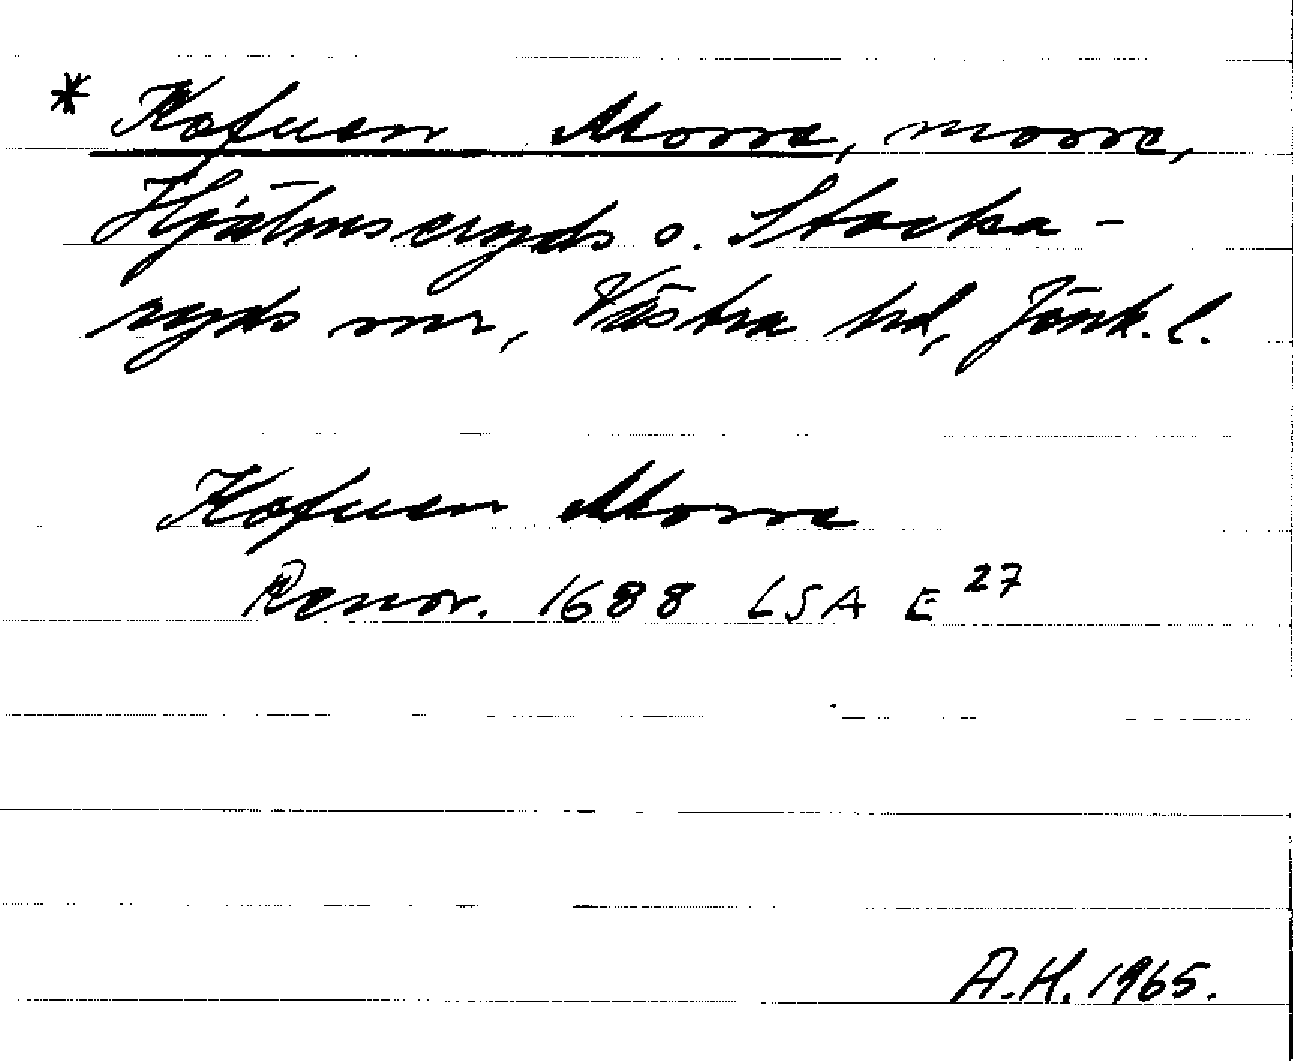 * Kofuen Morre, morre,
Hjälmseryds s. Stocka-
ryds snr, Västra hd, Jönk. l.
Kofuen Morre
Renov. 1688 LSA E 27
A.H. 1965.